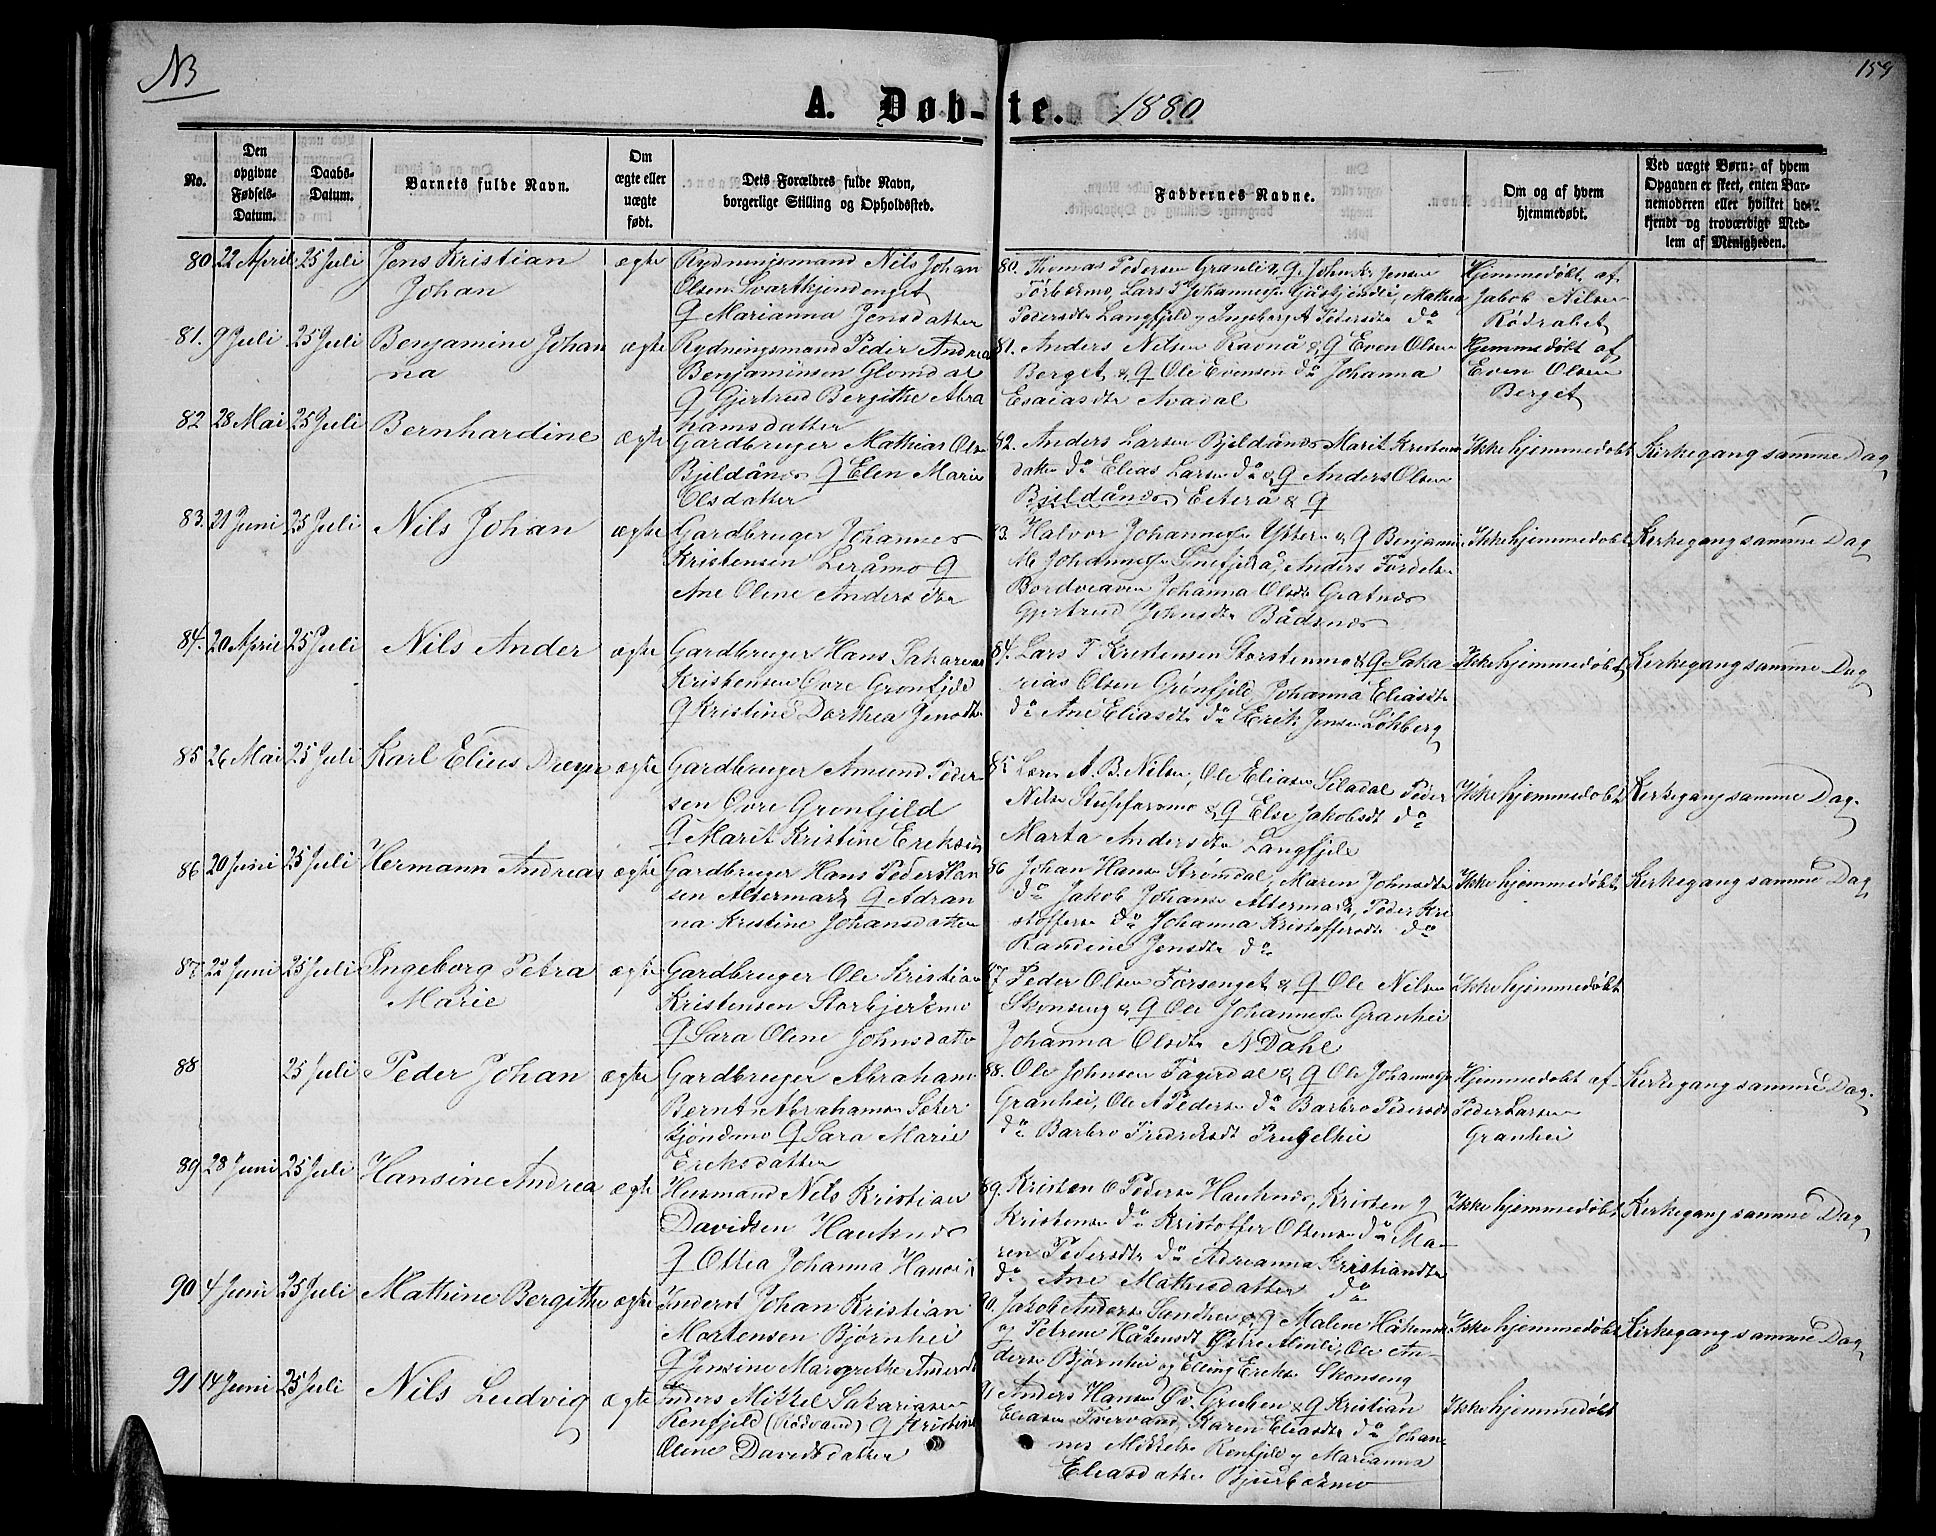 NB
159
A. Døb-te. 1880
No.
Den opgivne Fødsels-Datum.
Daabs-Datum.
Barnets fulde Navn.
Om ægte eller uægte født.
Dets Forældres fulde Navn, borgerlige Stilling og Opholdssted.
Faddernes Navne.
Om og af hvem hjemmedøbt.
Ved uægte Børn: af hvem Opgaven er skeet, enten Barnemoderen eller hvilket bekjendt og troværdigt Medlem af Menigheden.
80 22 April 25 Juli Jens Kristian ægte Rydningsmand Nils Johan
Johan Olsen Svartkjendenget
G Marianna Jensdatter
80. Thomas Pedersen Granli & G. John Kr Jensen
Lars Johannes Mathea
Pedersdtr Langfjeld Ingeborg A Pedersdtr do
Hjemmedøbt af
Jakob Nilsen
Rödsabet
81. 9 Juli 25 Juli Benjamine Johan ægte Rydningsmand Peder Andrea
na Benjaminsen Glomdal
G Gjertrud Bergithe Abra
hamsdatter
81. Anders Nilsen Ravnå & G Even Olsen
Berget & G Ole Evensen do Johanna
Esaiasdtr Avadal
Hjemmedøbt af
Even Olsen
Berget
82 28 Mai 25 Juli Bernhardine ægte Gardbruger Mathias Olsen
Bjeldånes G Elen Marie
Olsdatter
82. Anders Larsen Bjeldånes Marit Kristens
datter do Elias Larsen do & G Anders Olsen
Bjeldånes Eiterå & G
Ikke hjemmedøbt Kirkegang samme Dag
83. 21 Juni 25 Juli Nils Johan ægte Gardbruger Johannes
Kristensen Leråmo G
Ane Olene Andersdtr
83. Halvor Johannessen Yttern & G Benjamin
M Johannessen Anders
Johanna Olsdtr Gratnes
Gjertrud Johnsdtr Bådsnes
Ikke hjemmedøbt Kirkegang samme Dag
84. 20 April 25 Juli Nils Ander ægte Gardbruger Hans Sakarias
Kristensen Övre Grønfjeld
G Kristine Dorthea Jensdtr
84. Lars T Kristensen Storstenmo & G Saka
rias Olsen Grønfjeld Johanna Eliasdtr
do Ane Eliasdtr do Erik Jensen Løkberg
Ikke hjemmedøbt Kirkegang samme Dag
85 26 Mai 25 Juli Karl Elius Dreyer ægte Gardbruger Amund Peder-
sen Övre Grønfjeld
G Marit Kristine Eriksdtr
85 Lærer A. B. Nilsen, Ole Eliasen Siladal Peder
Nilsen Stupforsmo & G Else Jakobsdt do
Marta Andersdtr Langfjeld
Ikke hjemmedøbt Kirkegang samme Dag.
86 20 Juni 25 Juli Hermann Andreas ægte Gardbruger Hans Peder Han
sen Altermark G Adrian
na Kristine Johansdatter
86 Johan Hansen Strømdal, Maren Johnsdtr
do Jakob Johansen Altermark, Peder Kri
stoffersen do Johanna Kristoffersdtr do
Randine Jensdtr do
Ikke hjemmedøbt Kirkegang samme Dag
87 22 Juni 25 Juli Ingeborg Petra ægte Gardbruger Ole Kristian
Marie Kristensen Storbjerkmo
G Sara Olene Johnsdatter
87 Peder Olsen Forsenget & G Ole Nilsen
Skonseng & G Ole Johannessen Granhei
Johanna Olsdtr N Dahl
Ikke hjemmedøbt
88 25 Juli Peder Johan ægte Gardbruger Abraham
Bernt Abrahamsen Sæter
G Sara Marie
Eriksdatter
88. Ole Johnsen Fagerdal & G Ole Johannessen
Granhei, Ole A Pedersen do Barbro Pedersdt
do Barbro Fredriksdt Prugelhei
Hjemmedøbt af
Peder Larsen
Granhei
Kirkegang samme Dag.
89 28 Juni 25 Juli Hansine Andrea ægte Husmand Nils Kristian
Davidsen Hauknes
G Ottea Johanna Hansdtr
89. Kristen O Pedersen Hauknes, Kristen G
Kristensen do Kristoffer Ottesen do Ma-
ren Pedersdtr do Adrianna Kristiansdtr
do Ane Mathisdatter do
Ikke hjemmedøbt Kirkegang samme Dag
90 4 Juni 25 Juli Mathine Bergithe ægte Inderst Johan Kristian
Mortensen Bjørnhei
G Jensine Margrethe Andersdt
90. Jakob Andersen & G Malene Håkensen
og Petrene Håkensdt Østre Almli, Ole An-
dersen Bjørnhei og Elling Eriksen Skonseng
Ikke hjemmedøbt Kirkegang samme Dag
91 14 Juni 25 Juli Nils Ludvig ægte Inders Mikkel Sakariasen
Renfjeld (Rödvand) G Kristine
Oline Davidsdatter
91 Anders Hansen Øv. Gruben & G Kristian
Eliasen Tvervand, Karen Eliasdtr do Johan-
nes Mikkelsen Renfjeld og Marianna
Eliasdatter Bjurbekmo
Ikke hjemmedøbt